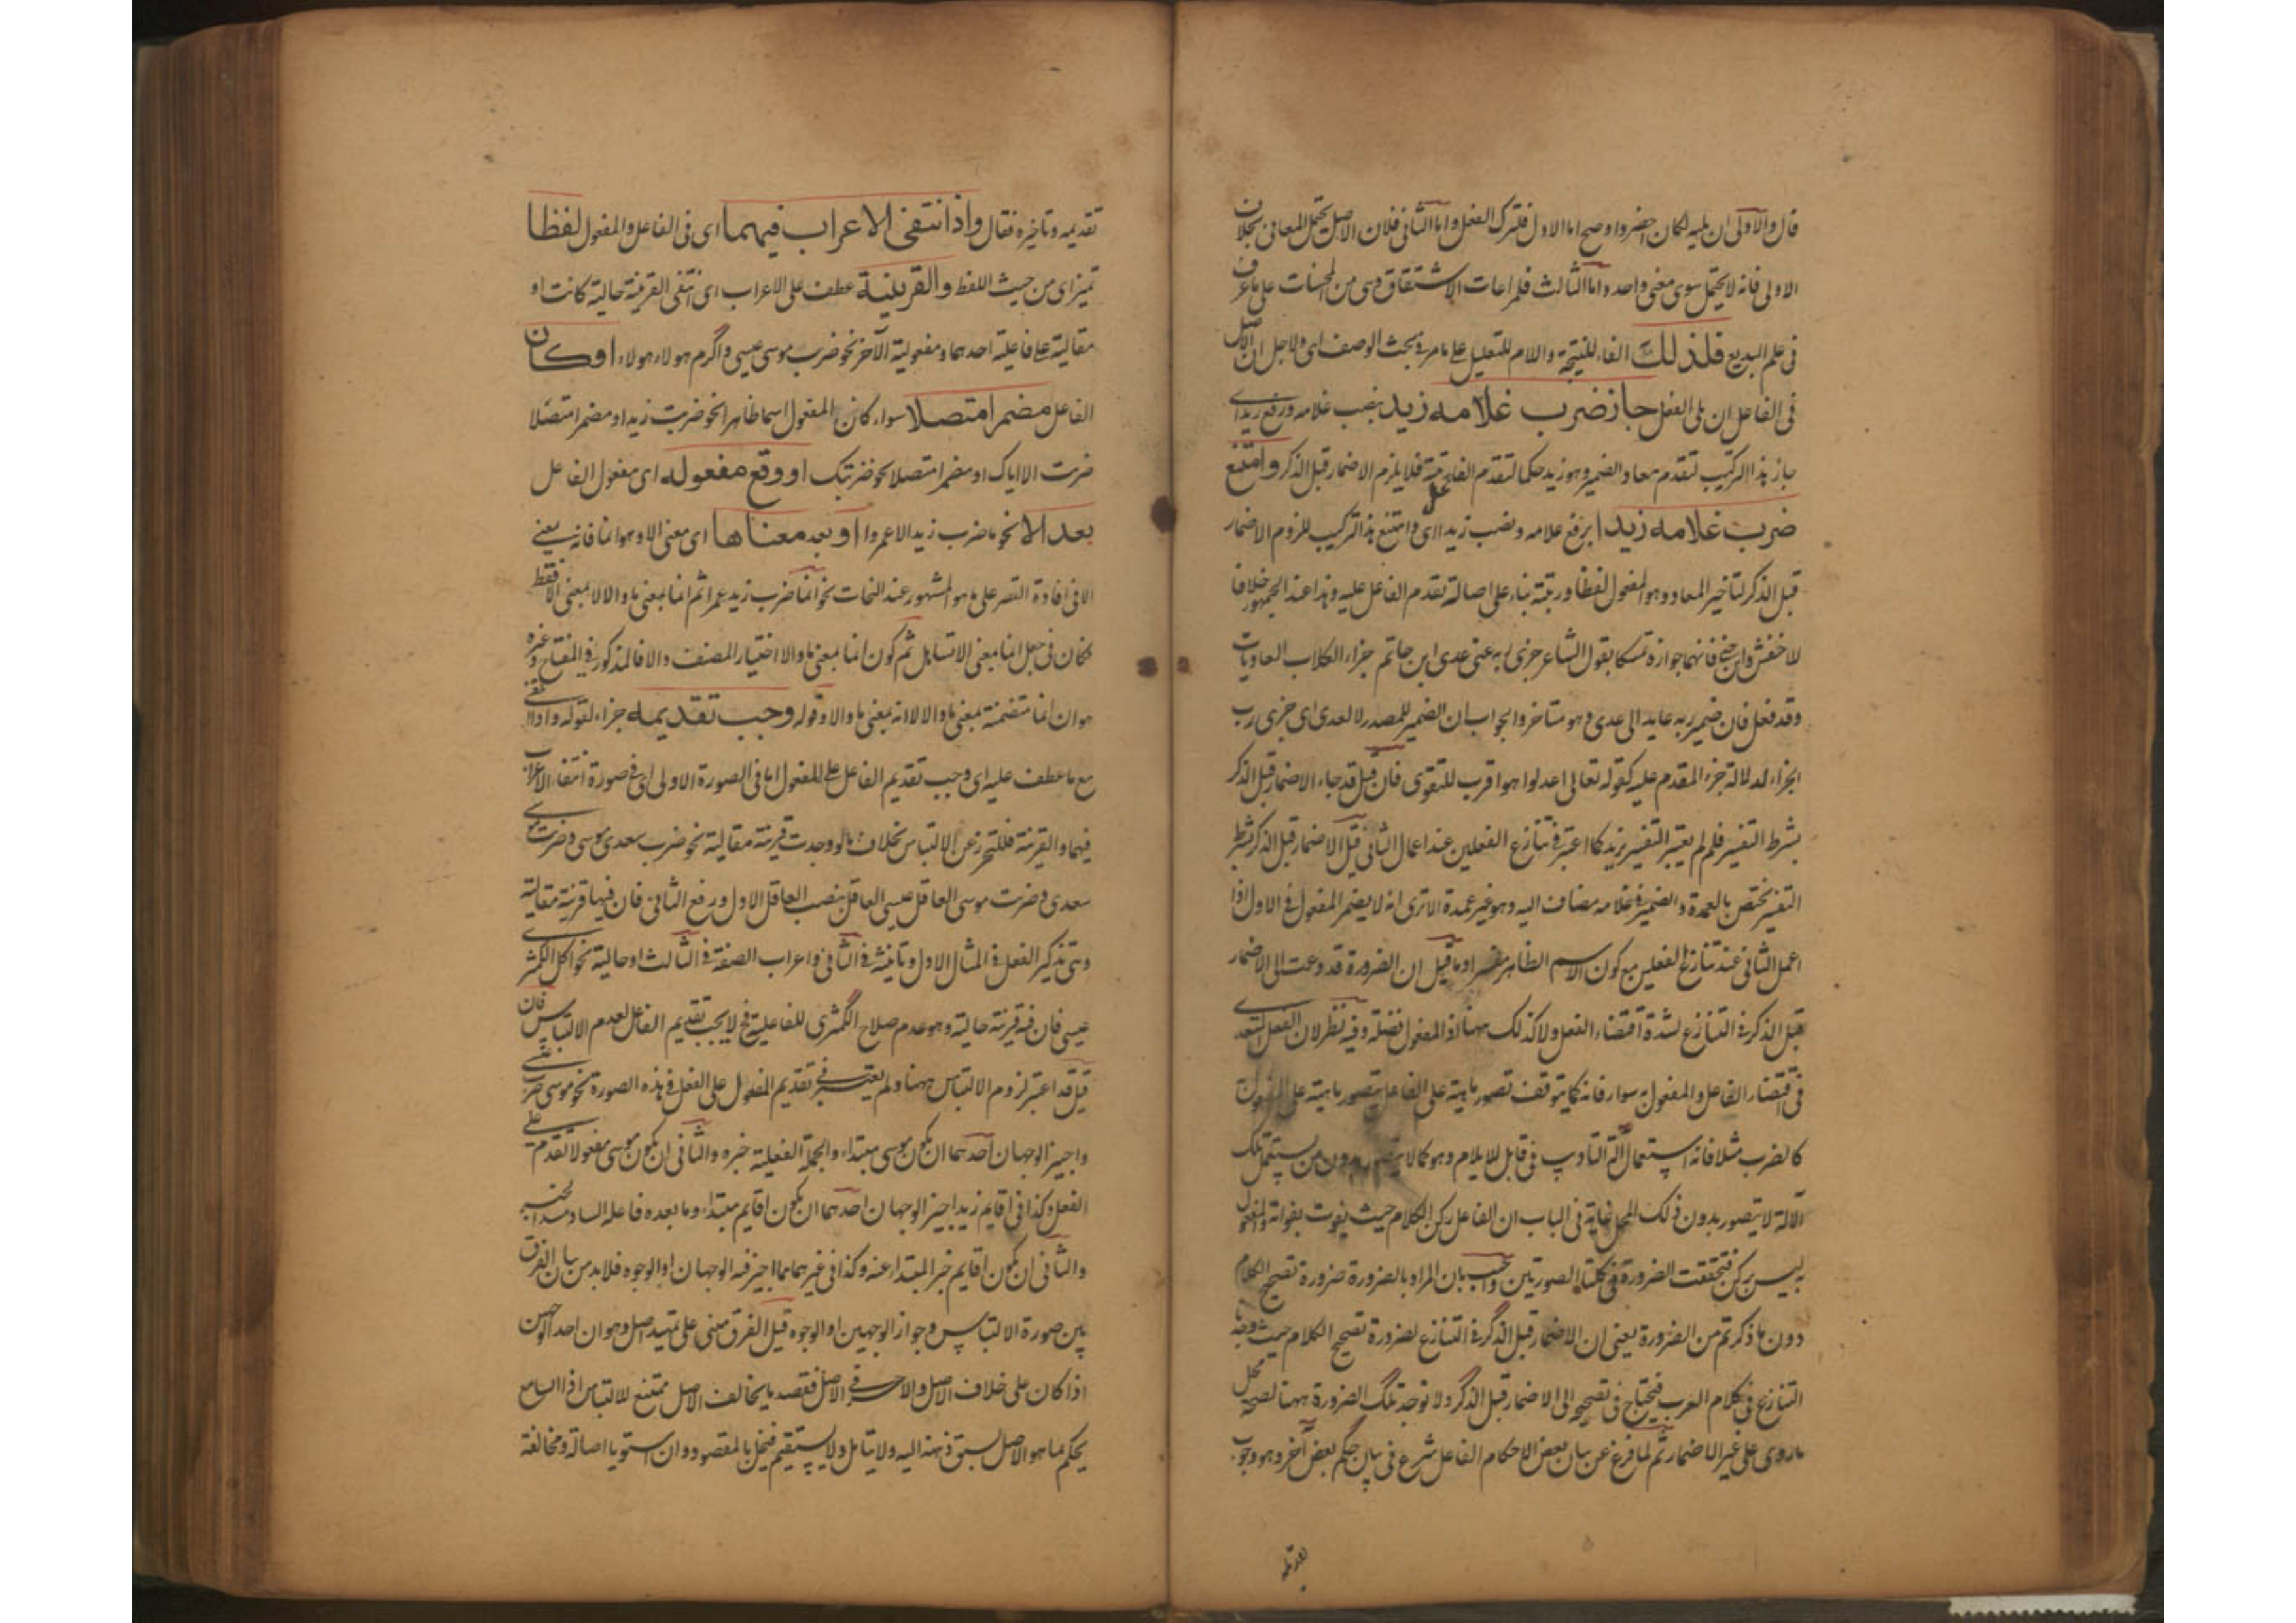 قال والاولى ان يليه لكان اخصر واوضح اما الاول فلترك الفعل واما الثانى فلان الاصل يحتمل المعانى بخلاف
الاولى فانه لا يحتمل سوى معنى واحد واما الثالث فلمراعات الاشتقاق وهى من المحسنات على ما عرف
فى علم البديع فلذلك الفاء للنتيجة واللام للتعليل على ما مر فى بحث الوصف اى ولاجل ان الاصل
فى الفاعل ان يلى الفعل جاز ضرب غلامه زيد بنصب غلامه ورفع زيد اى
جاز هذا التركيب لتقدم معاد الضمير وهو زيد حكما لتقدم الفاعل رتبة فلا يلزم الاضمار قبل الذكر وامتنع
ضرب غلامه زيدا برفع غلامه ونصب زيدا اى وامتنع هذا التركيب للزوم الاضمار
قبل الذكر لتاخير المعاد وهو المفعول لفظا ورتبة بناء على اصالة تقدم الفاعل عليه وهذا عند الجمهور خلافا
لاخفش وابن جنى فانهما جوازه تمسكا بقول الشاعر جزى ربه عنى عدى ابن حاتم جزاء الكلاب العاويات
وقد فعل فان ضمير ربه عايد الى عدى وهو متاخر والجواب ان الضمير للمصدر لا لعدى اى جزى رب
الجزاء لدلالة جزء المقدم عليه كقوله تعالى اعدلوا هو اقرب للتقوى فان قيل قد جاء الاضمار قبل الذكر
بشرط التفسير فلم لم يعتبر التفسير بزيد كما اعتبر فى تنازع الفعلين عند اعمال الثانى قيل الاضمار قبل الذكر بشرط
التفسير مختص بالعمدة والضمير فى غلامه مضاف اليه وهو غير عمدة الا ترى انه لا يضمر المفعول فى الاول اذا
اعمل الثانى عند تنازع الفعلين مع كون الاسم الظاهر مفسرا وما قيل ان الضرورة قد دعت الى الاضمار
قبل الذكر فى التنازع لشدة اقتضاء الفعل ولا كذلك ههنا اذ المفعول فضلة وفيه نظر لان الفعل المتعدى
فى اقتضاء الفاعل والمفعول به سواء فانه كما يتوقف تصور ماهيته على الفاعل يتصور ماهيته على المفعول
كالضرب مثلا فانه استعمال آلة التاديب فى قابل للايلام وهو كما لا يتصور بدون من يستعمل تلك
الآلة لا يتصور بدون ذلك المحل غاية فى الباب ان الفاعل ركن الكلام حيث يفوت بفواته والمفعول
به ليس بركن فتحققت الضرورة فى كلتا الصورتين واجيب بان المراد بالضرورة ضرورة تصحيح الكلام
دون ما ذكرتم من الضرورة يعنى ان الاضمار قبل الذكر فى التنازع لضرورة تصحيح الكلام حيث وجد
التنازع فى كلام العرب فيحتاج فى تصحيحه الى الاضمار قبل الذكر ولا توجد تلك الضرورة ههنا لصحة محمل
ما روى على غير الاضمار ثم لما فرغ عن بيان بعض الاحكام الفاعل شرع فى بيان حكم بعض آخر وهو وجوب
تقديمه وتاخيره فقال واذا انتفى الاعراب فيهما اى فى الفاعل والمفعول لفظا
تميز اى من حيث اللفظ والقرينة عطف على الاعراب اى انتفى القرينة حالية كانت او
مقالية على فاعلية احدهما ومفعولية الآخر نحو ضرب موسى عيسى واكرم هولاء هولاء او كان
الفاعل مضمرا متصلا سواء كان المفعول اسما ظاهرا نحو ضربت زيدا او مضمرا منفصلا
ضربت الا اياك او مضمرا متصلا نحو ضربتك او وقع مفعوله اى مفعول الفاعل
بعد الا نحو ما ضرب زيد الا عمروا او بعد معناها اى معنى الا وهو انما فانه بمعنى
الا فى افادة القصر على ما هو المشهور عند النحات نحو انما ضرب زيد عمرا ثم انما بمعنى ما والا لا بمعنى الا فقط
فكان فى جعل انما بمعنى الا تساهل ثم كون انما بمعنى ما والا اختيار المصنف والا فالمذكور فى المفتاح وغيره
هو ان انما متضمنة بمعنى ما والا لا انه بمعنى ما والا وقوله وجب تقديمه جزاء لقوله واذا انتفى
مع ما عطف عليه اى وجب تقديم الفاعل على المفعول اما فى الصورة الاولى اى فى صورة انتفاء الاعراب
فيهما والقرينة فللتحرز عن الالتباس بخلاف ما لو وجدت قرينة مقالية نحو ضرب سعدى موسى وضربت موسى
سعدى وضربت موسى العاقل عيسى العاقل بنصب العاقل الاول ورفع الثانى فان فيها قرينة مقالية
وهى تذكير الفعل فى المثال الاول وتانيثه فى الثانى واعراب الصفة فى الثالث او حالية نحو اكل الكمثرى
عيسى فان فيه قرينة حالية وهو عدم صلاح الكمثرى للفاعلية فح لا يجب تقديم الفاعل لعدم الالتباس فان
قيل قد اعتبر لزوم الالتباس ههنا ولم يعتبر فى تقديم المفعول على الفعل فى هذه الصورة نحو موسى ضرب عيسى
واجيز الوجهان احدهما ان يكون موسى مبتداء والجملة الفعلية خبره والثانى ان يكون موسى مفعولا تقدم على
الفعل وكذا فى اقايم زيد اجيز الوجهان احدهما ان يكون اقايم مبتداء وما بعده فاعله الساد مسد الخبر
والثانى ان يكون اقايم خبر المبتداء عنه وكذا فى غيرهما مما اجيز فيه الوجهان او الوجوه فلا بد من بيان الفرق
بين صورة الالتباس وجواز الوجهين او الوجوه قيل الفرق مبنى على تمهيد اصل وهو ان احد الوجهين
اذا كان على خلاف الاصل والاخر فى الاصل فقصد ما يخالف الاصل ممتنع للالتباس اذ السامع
يحكم بما هو الاصل لسبق ذهنه اليه ولا يتامل ولا يستقيم فيخل بالمقصود وان استويا اصالة ومخالفة